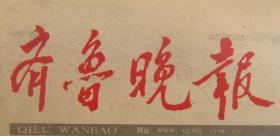 齐鲁晚報
QILU WANBAO · 网址：WWW. QLWB. COM. CN